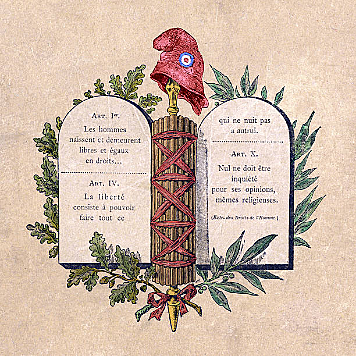 Art. Ier.
Les hommes
naissent et demeurent
libres et égaux
en droits...
Art. IV.
La liberté
consiste à pouvoir
faire tout ce
qui ne nuit pas
a autrui.
Art. X.
Nul ne doit être
inquiété
pour ses opinions,
mêmes religieuses.
(Extr. des Droits de l'Homme.)